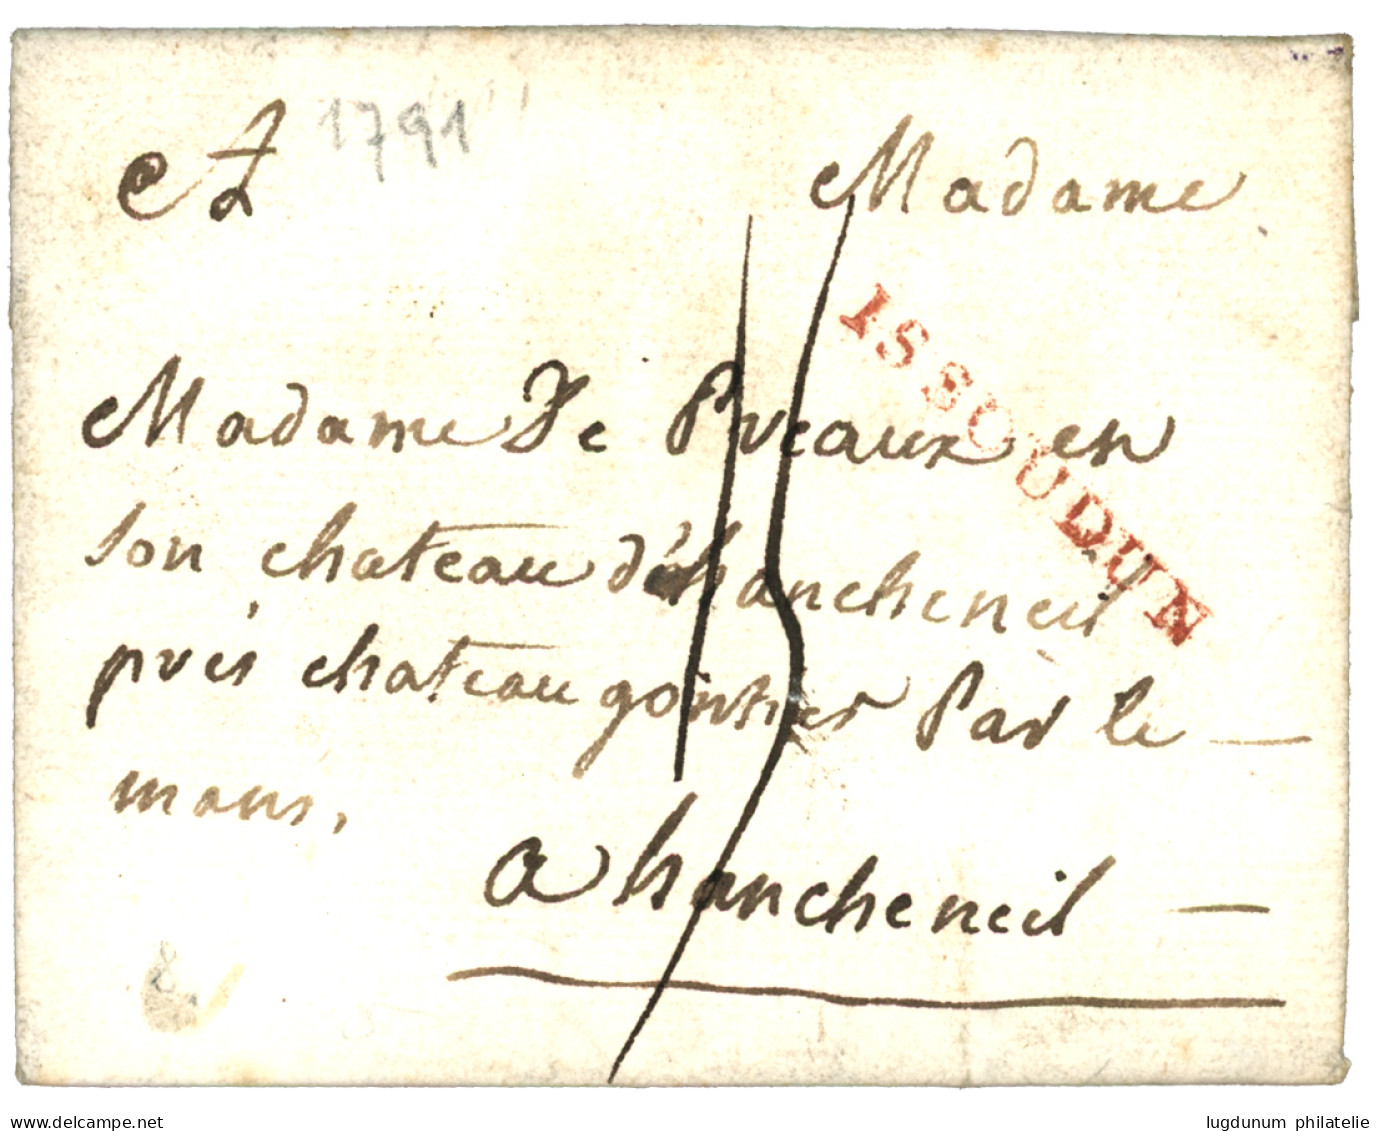 1791
Madame
ISSOUDUN
Madame De Preaux en
son chateau d'hancheneil
près chateaugontier Par le —
mans,
a hancheneil —
15
www.delcampe.net
lugdunum philatelie